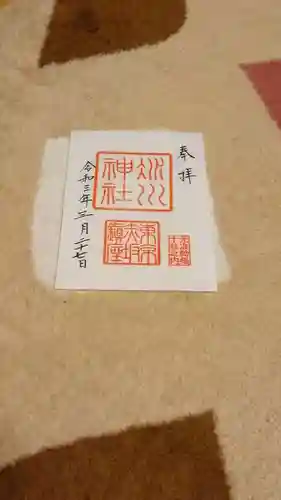 奉拝
氷川
神社
東京
赤坂
鎮座
令和三年三月二十七日